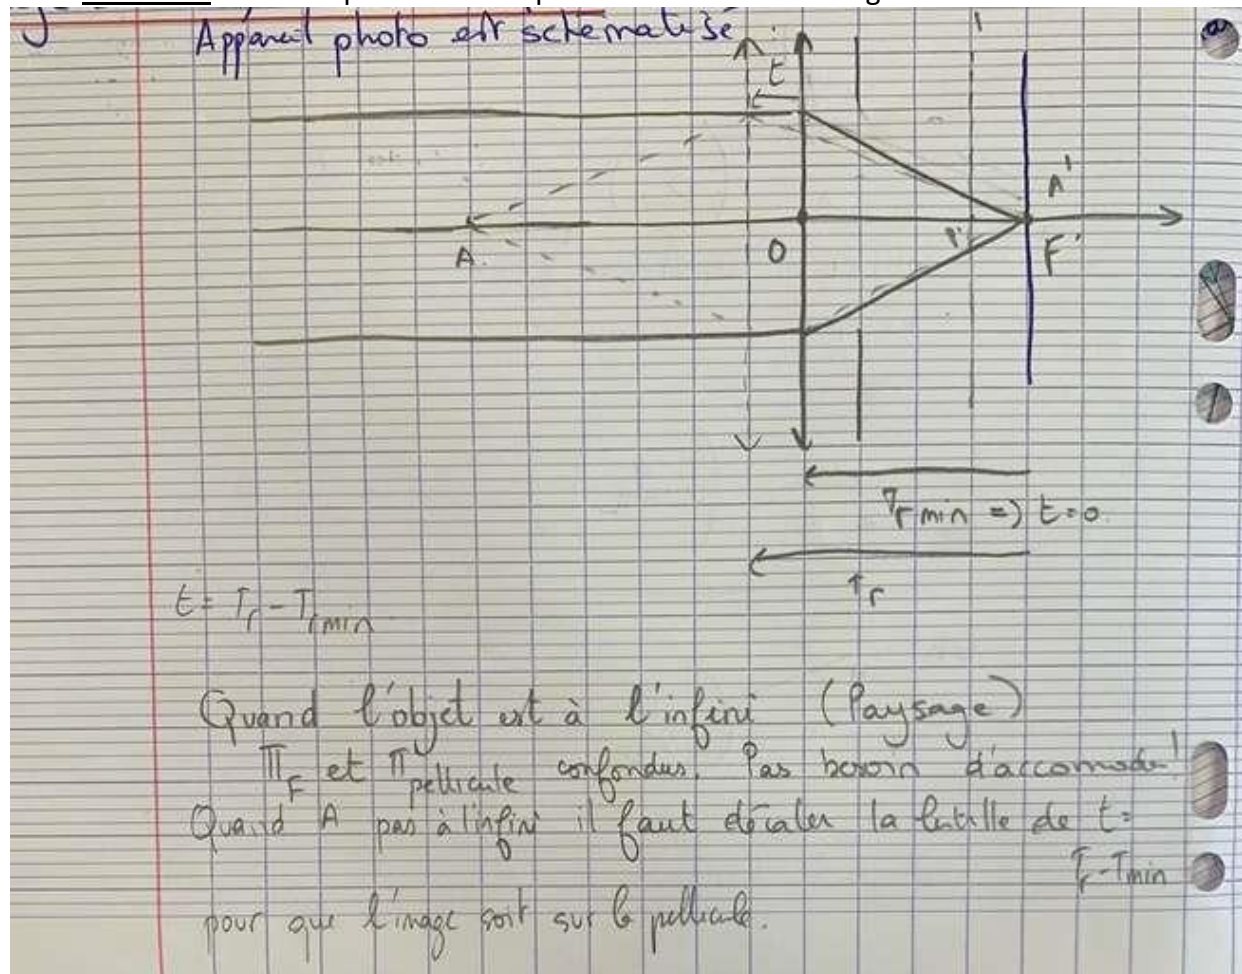 Appareil photo est schématisé
t
A'
A
O
F'
Tr min => t=0.
Tr
t = Tr - Tr min
Quand l'objet est à l'infini (Paysage)
πF et πpellicule confondus. Pas besoin d'accomoder!
Quand A pas à l'infini il faut décaler la lentille de t=
Tr-Tmin
pour que l'image soit sur la pellicule.